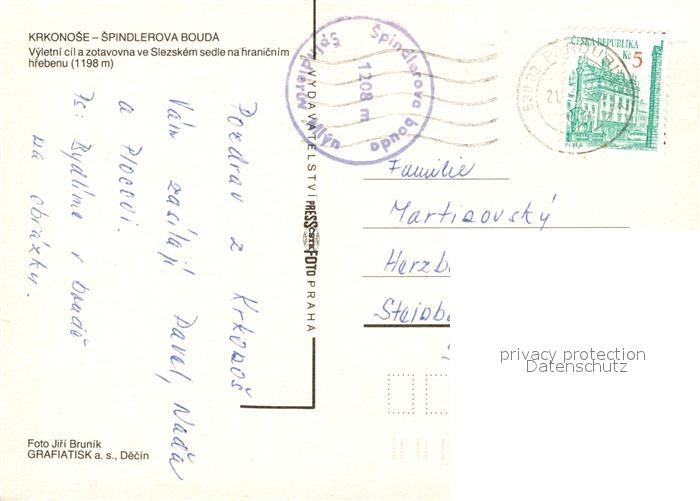 KRKONOŠE – ŠPINDLEROVA BOUDA
Výletní cíl a zotavovna ve Slezském sedle na hraničním
hřebenu (1198 m)
Pozdrav z Krkonoš
Vám zasílají Pavel, Naďa
a
Ps: Bydlíme v boudě
na obrázku.
Foto Jiří Bruník
GRAFIATISK a. s., Děčín
VYDAVATELSTVÍ PRESSFOTO PRAHA
ČSTK
Špindlerova bouda
1208 m
Špindlerův Mlýn
ČESKÁ REPUBLIKA
Kč 5
PLZEŇ
21.
Familie
Martinovský
privacy protection
Datenschutz